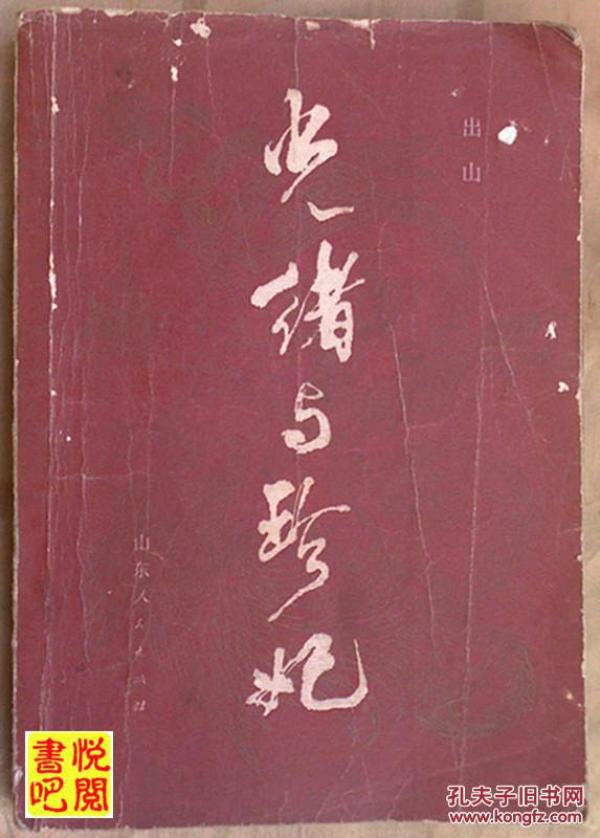 出山
光绪与珍妃
山东人民出版社
悦阅
書吧
孔夫子旧书网
www.kongfz.com